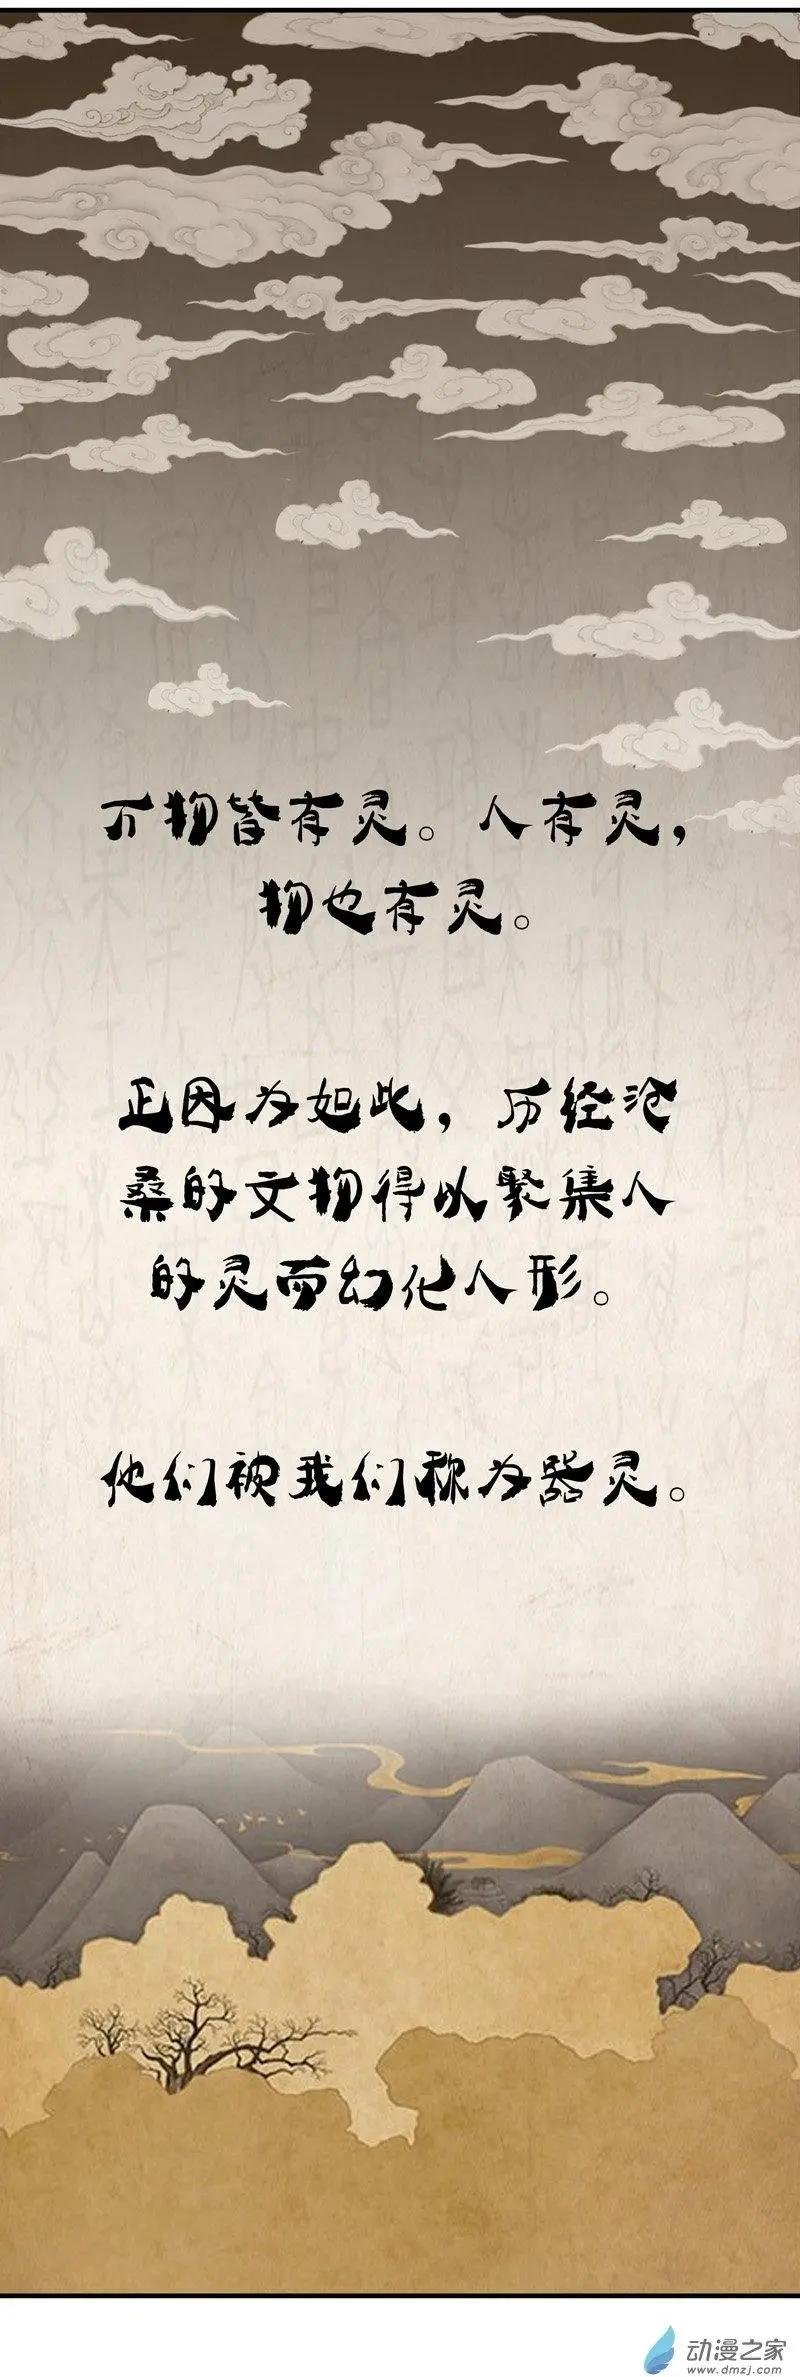 万物皆有灵。人有灵，
物也有灵。
正因为如此，历经沧
桑的文物得以聚集人
的灵而幻化人形。
他们被我们称为器灵。
动漫之家
www.dmzj.com